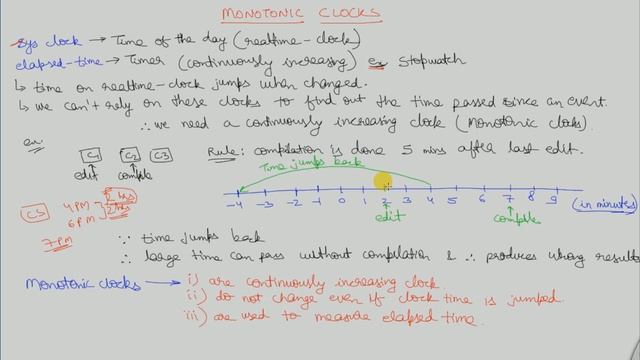 MONOTONIC CLOCKS
sys clock → Time of the day (realtime-clock)
elapsed-time → Timer (continuously increasing) ex Stopwatch
↳ time on realtime-clock jumps when changed.
↳ we can't rely on these clocks to find out the time passed since an event.
∴ we need a continuously increasing clock (Monotonic clocks).
ex:
C1 C2 C3
Rule: compilation is done 5 mins after last edit.
edit compile
Time jumps back
-4 -3 -2 -1 0 1 2 3 4 5 6 7 8 9 (in minutes)
edit compile
CS 4 PM 2 hrs
6 PM 2 hrs
7 PM
∵ time jumps back
∴ large time can pass without compilation & ∴ produces wrong results
Monotonic clocks → i) are continuously increasing clock.
ii) do not change even if clock time is jumped.
iii) are used to measure elapsed time.